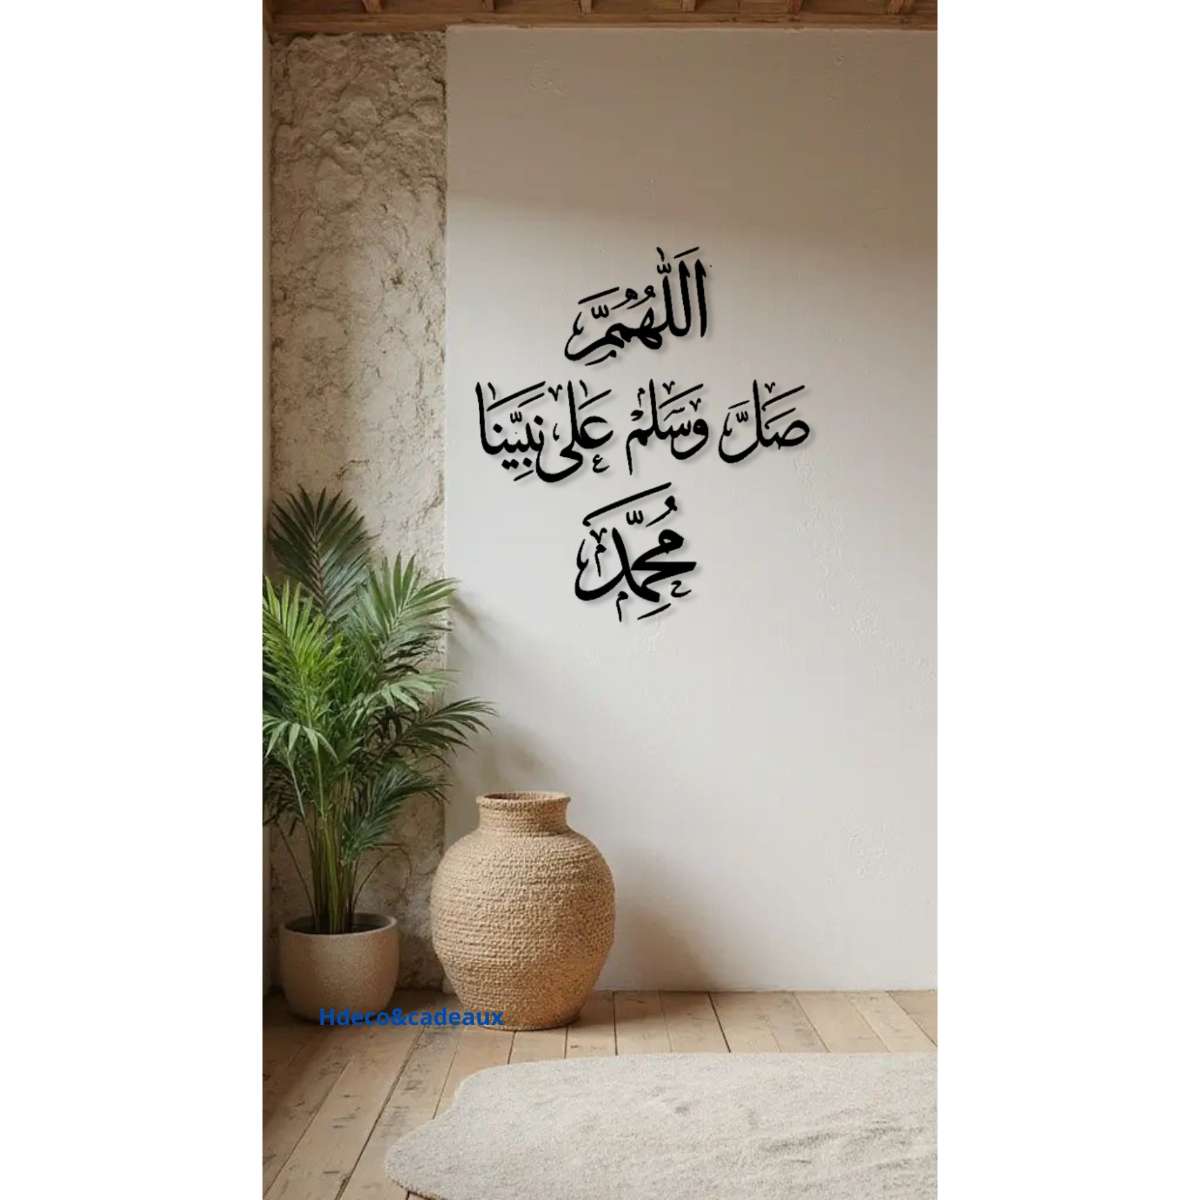 اَللّٰهُمَّ
صَلَّ وَسَلِمْ عَلٰى نَبِيِّنَا
مُحَمَّدٍ
Hdeco&cadeaux